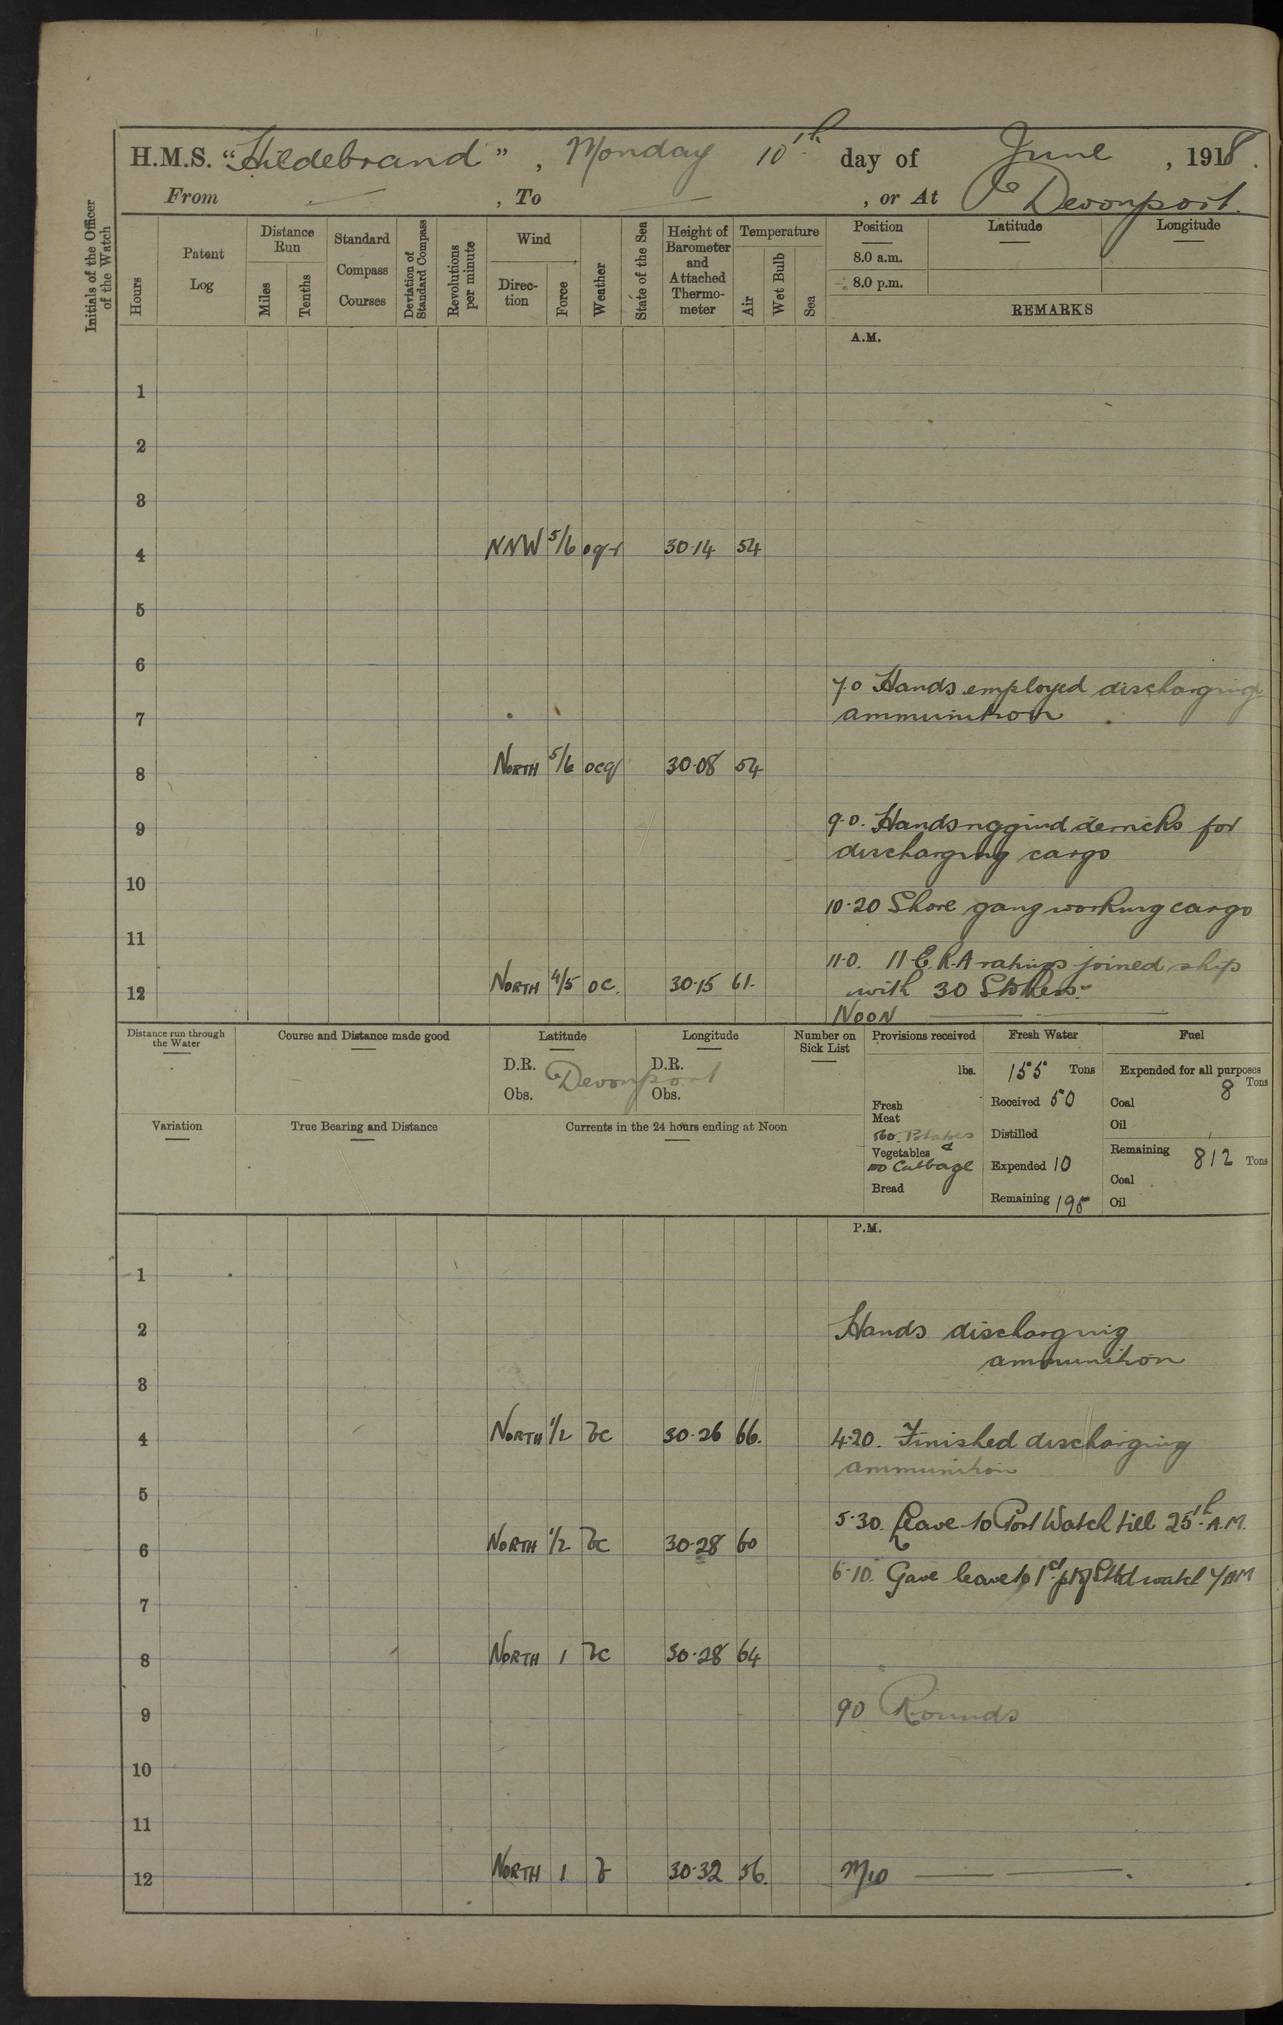 H.M.S. "Hildebrand", Monday 10th day of June, 1918.
From — , To — , or At Devonport.
Initials of the Officer of the Watch
Hours
Patent Log
Distance Run
Miles
Tenths
Standard Compass Courses
Deviation of Standard Compass
Revolutions per minute
Wind
Direction
Force
Weather
State of the Sea
Height of Barometer and Attached Thermometer
Temperature
Air
Wet Bulb
Sea
Position
8.0 a.m.
8.0 p.m.
Latitude
Longitude
REMARKS
A.M.
1
2
3
4 NNW 5/6 oqr 30.14 54
5
6
7.0 Hands employed discharging
7 ammunition
8 North 5/6 ocq 30.08 54
9 9.0. Hands riggind derricks for
discharging cargo
10 10.20 Shore gang working cargo
11 11.0. 11 E.R.A ratings joined ship
12 North 4/5 oc. 30.15 61. with 30 Stokers.
Noon
Distance run through the Water
Course and Distance made good
Latitude
D.R.
Obs.
Longitude
D.R.
Obs.
Devonport
Number on Sick List
Provisions received
lbs.
Fresh Meat
560 Potatoes &
Vegetables
Cabbage
Bread
Fresh Water
155 Tons
Received 50
Distilled
Expended 10
Remaining 195
Fuel
Expended for all purposes
8 Tons
Coal
Oil
Remaining 812 Tons
Coal
Oil
Variation
True Bearing and Distance
Currents in the 24 hours ending at Noon
P.M.
1
2 Hands discharging
ammunition
3
4 North 1/2 bc 30.26 66. 4.20. Finished discharging
ammunition
5 5.30. Leave to Port Watch till 25th A.M.
6 North 1/2 bc 30.28 60
6.10. Gave leave to 1st pt of Stbd watch 7 AM
7
8 North 1 bc 30.28 64
9 90 Rounds
10
11
12 North 1 b 30.32 56. Mid